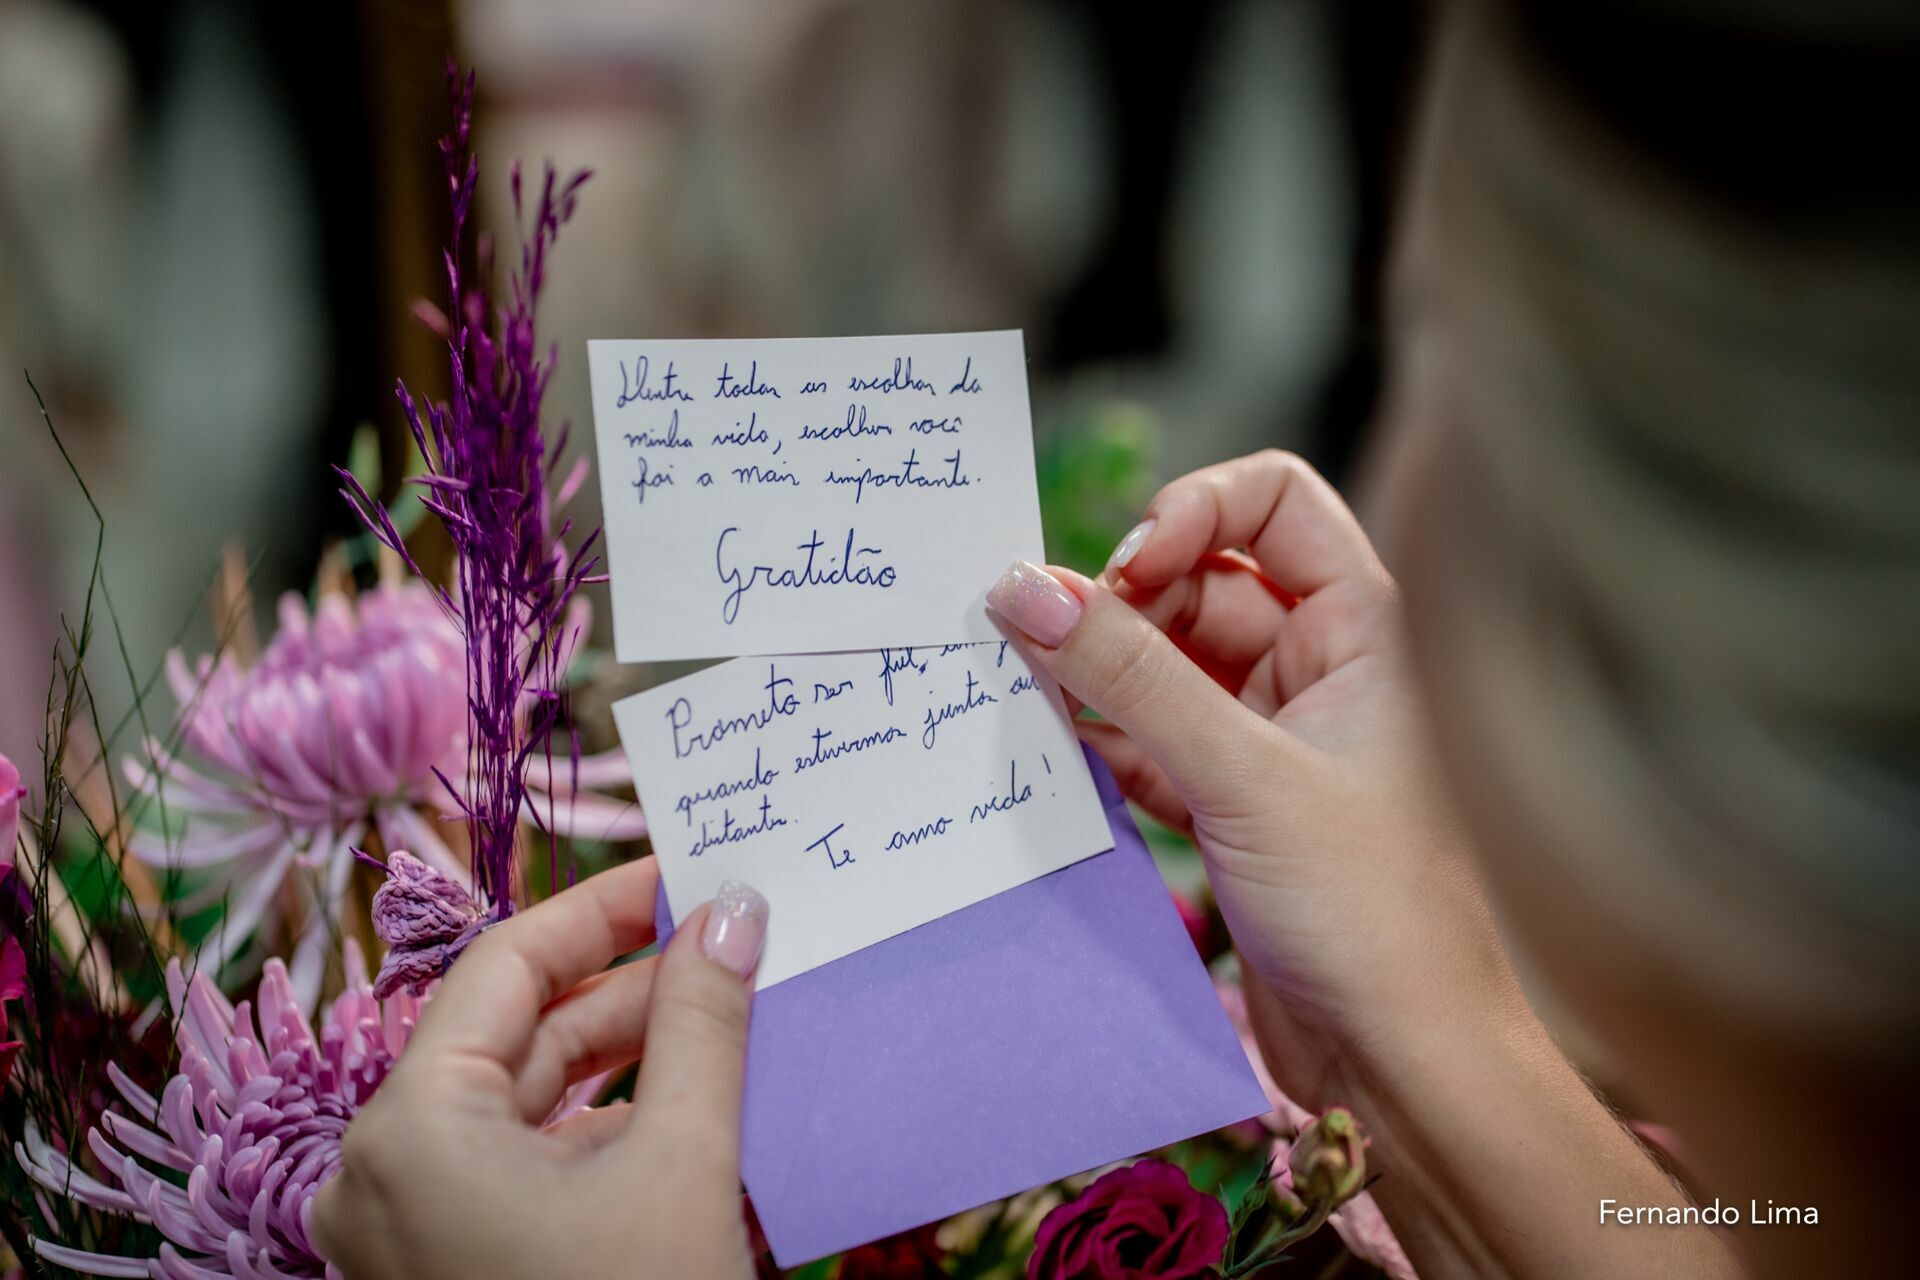 Dentre todas as escolhas da
minha vida, escolher você
foi a mais importante.
Gratidão
Prometo ser fiel,
quando estivermos juntos ou
distantes.
Te amo vida!
Fernando Lima